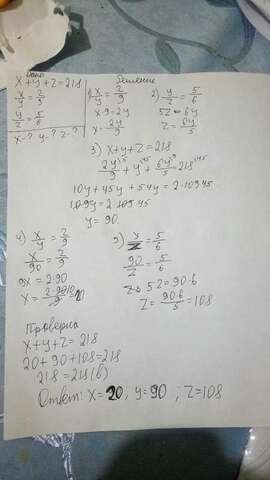 Дано
x+y+z=218
x/y=2/9
y/z=5/6
x-? y-? z-?
Решение
1) x/y=2/9
x·9=2y
x=2y/9
2) y/z=5/6
5z=6y
z=6y/5
3) x+y+z=218
2y/9+y+6y/5=218
10y+45y+54y=2·10945
109y=2·10945
y=90
4) x/y=2/9
x/90=2/9
9x=2·90
x=2·90/9=20
5) y/z=5/6
90/z=5/6
5z=90·6
z=90·6/5=108
Проверка
x+y+z=218
20+90+108=218
218=218(в)
Ответ: x=20; y=90; z=108